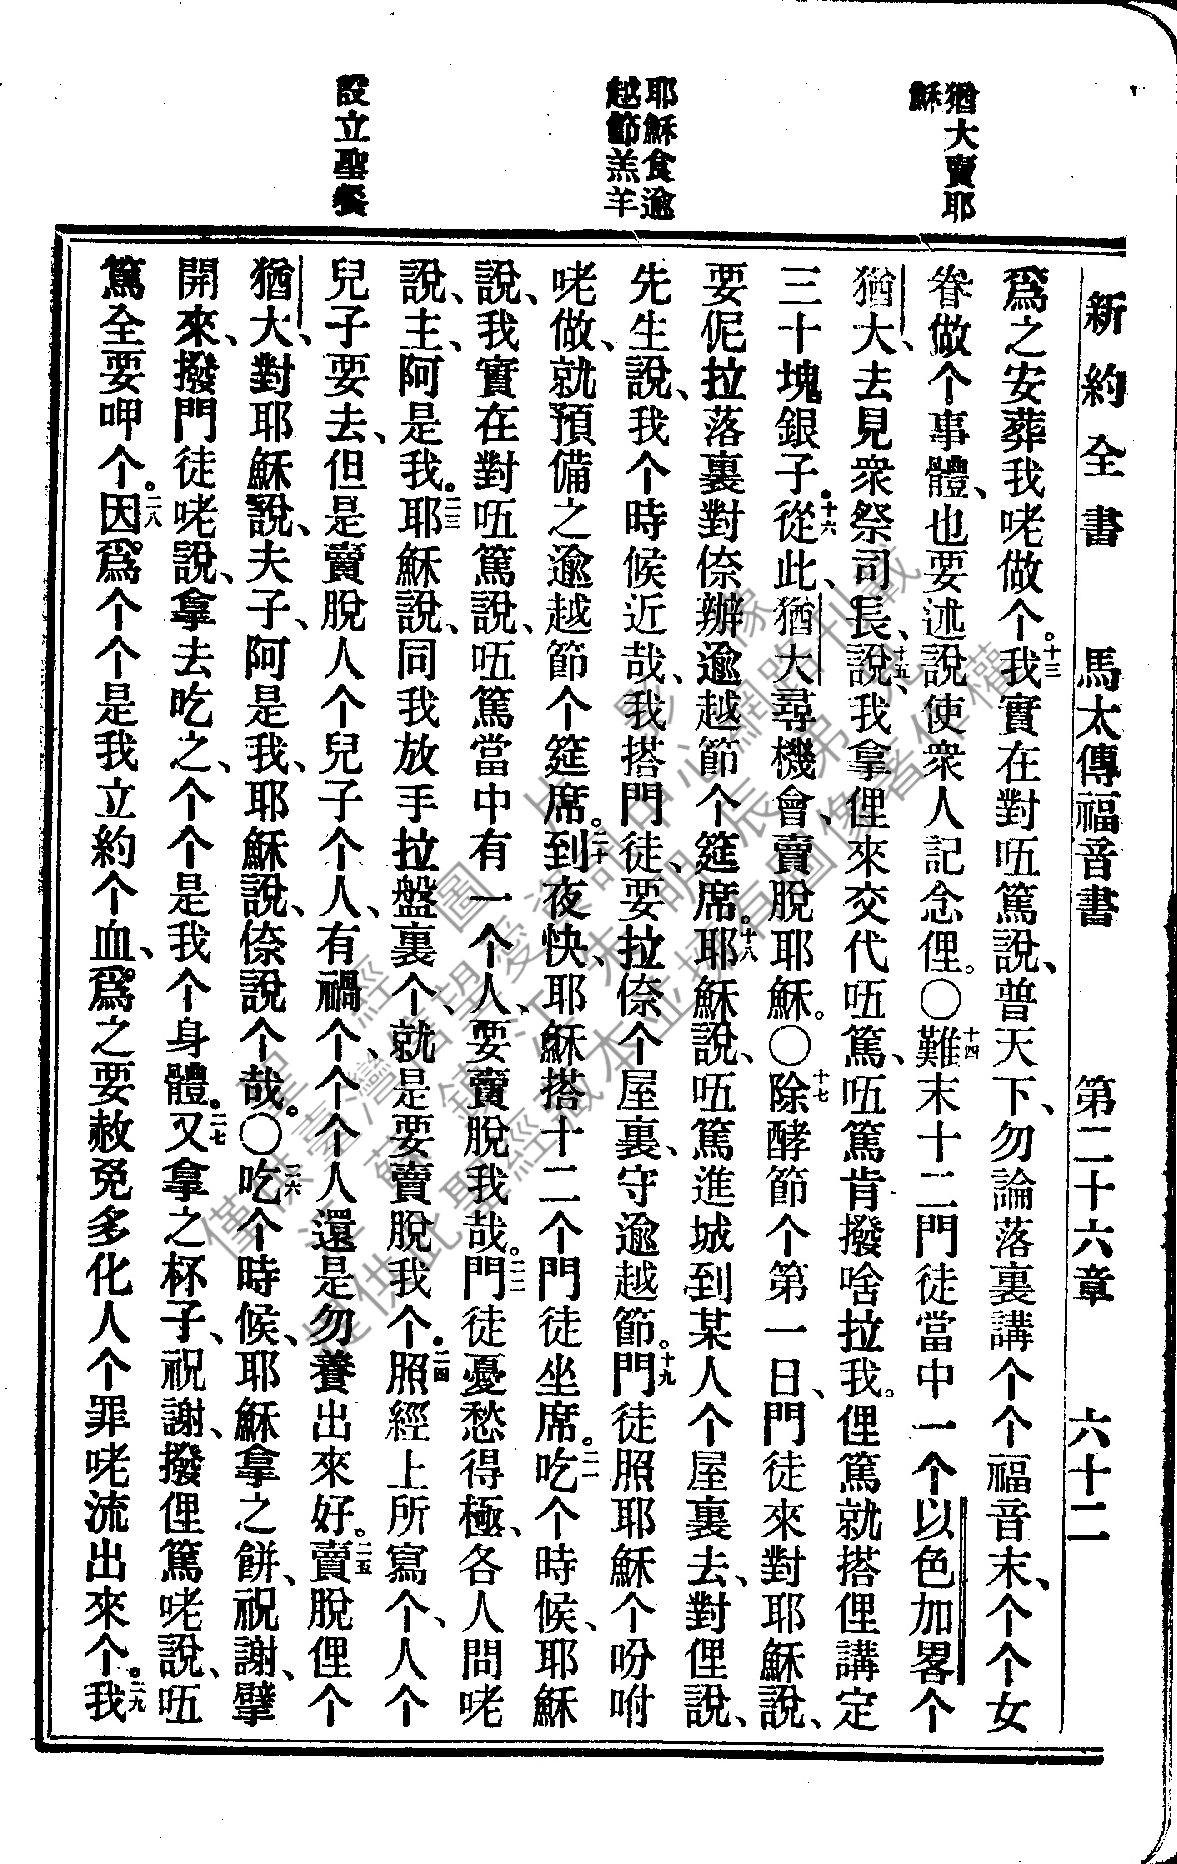 猶大賣耶
穌
耶穌食逾
越節羔羊
設立聖餐
新約全書 馬太傳福音書 第二十六章 六十二
爲之安葬我咾做个。十三我實在對㕶篤說、普天下、勿論落裏講个个福音末、个个女
眷做个事體、也要述說使衆人記念俚。〇十四難末十二門徒當中一个以色加畧个
猶大、去見衆祭司長、十五說、我拿俚來交代㕶篤、㕶篤肯撥啥拉我。俚篤就搭俚講定
三十塊銀子。十六從此、猶大尋機會、賣脫耶穌。〇十七除酵節个第一日、門徒來對耶穌說、
要伲拉落裏對倷辦逾越節个筵席。十八耶穌說、㕶篤進城到某人个屋裏去、對俚說、
先生說、我个時候近哉、我搭門徒、要拉倷个屋裏、守逾越節。十九門徒照耶穌个吩咐
咾做、就預備之逾越節个筵席。二十到夜快、耶穌搭十二个門徒坐席。二一吃个時候、耶穌
說、我實在對㕶篤說、㕶篤當中有一个人、要賣脫我哉。二二門徒憂愁得極、各人問咾
說、主、阿是我。二三耶穌說、同我放手拉盤裏个、就是要賣脫我个。二四照經上所寫个、人个
兒子要去、但是賣脫人个兒子个人、有禍个、个个人還是勿養出來好。二五賣脫俚个
猶大、對耶穌說、夫子、阿是我、耶穌說、倷說个哉。〇二六吃个時候、耶穌拿之餅、祝謝、擘
開來、撥門徒咾說、拿去吃之、个个是我个身體。二七又拿之杯子、祝謝、撥俚篤咾說、㕶
篤全要呷个。二八因爲个个是我立約个血、爲之要赦免多化人个罪咾流出來个。二九我